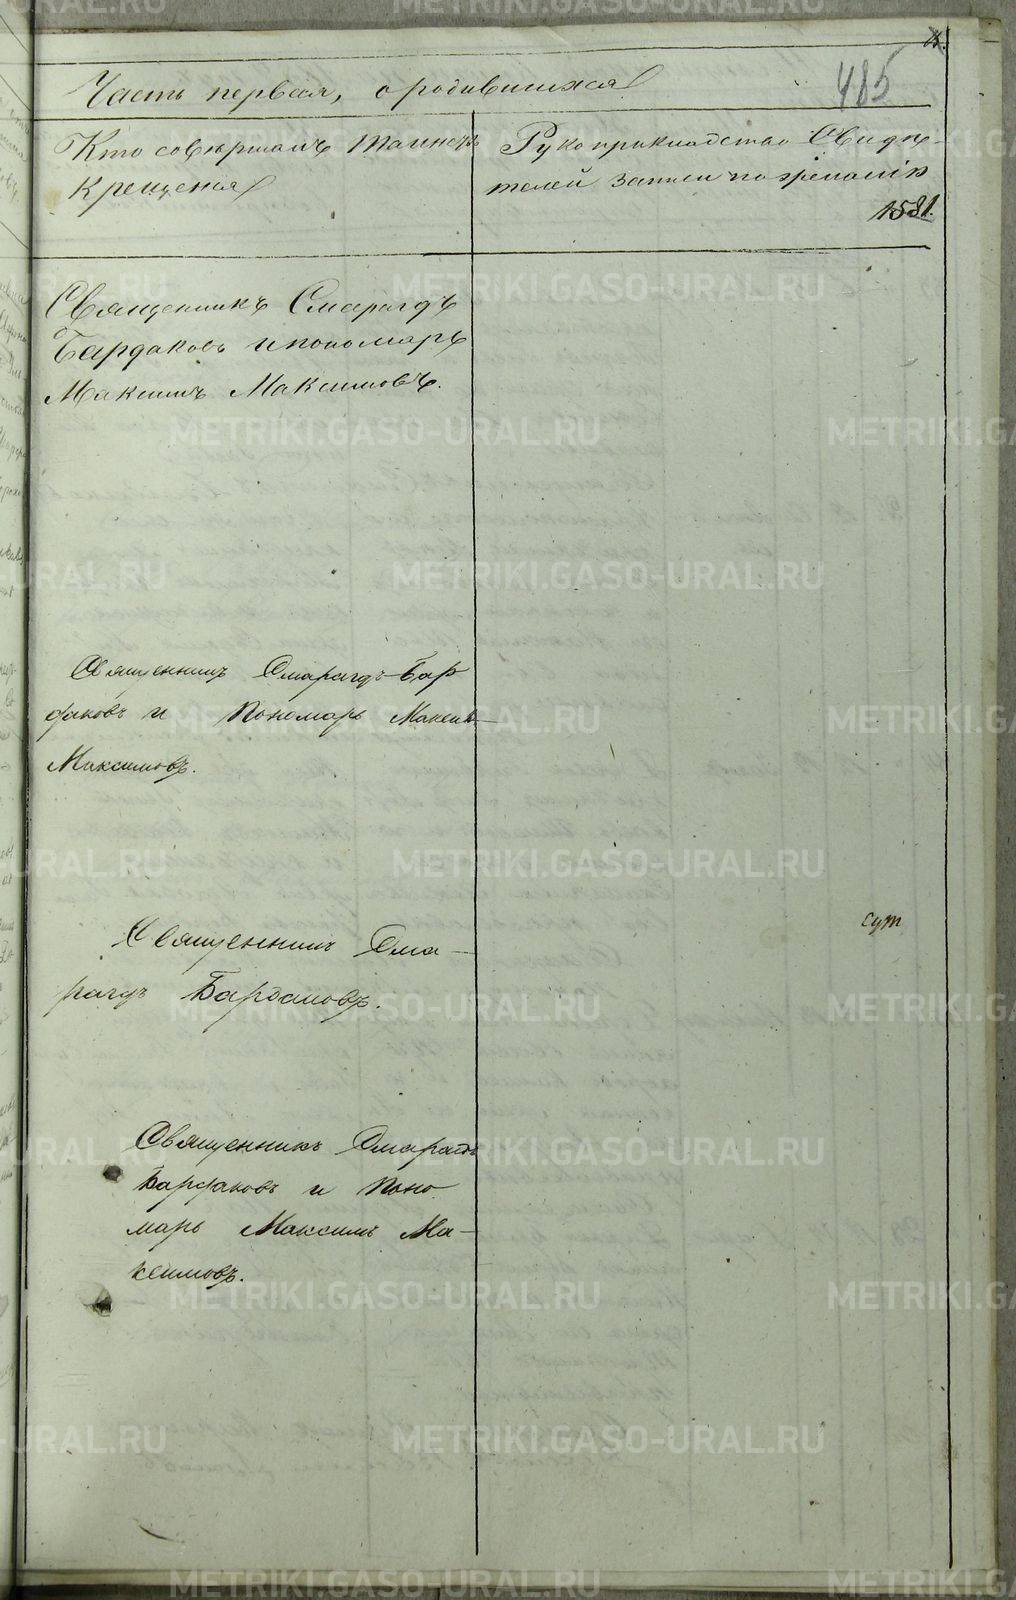 485
Часть первая, о родившихся
Кто совершалъ таинство
Крещенія
Рукоприкладство Свидѣ-
телей записи по желанію
1581.
Священникъ Смарагдъ
Бардаковъ и пономарь
Максимъ Максимовъ.
Священникъ Смарагдъ Бар
даковъ и Пономарь Максимъ
Максимовъ.
Священникъ Сма-
рагдъ Бардаковъ.
сут
Священникъ Смарагдъ
Бардаковъ и Поно
марь Максимъ Ма-
ксимовъ.
METRIKI.GASO-URAL.RU